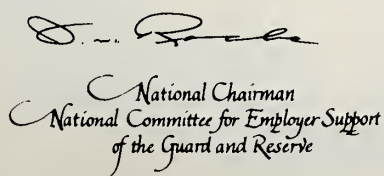 National Chairman
National Committee for Employer Support
of the Guard and Reserve